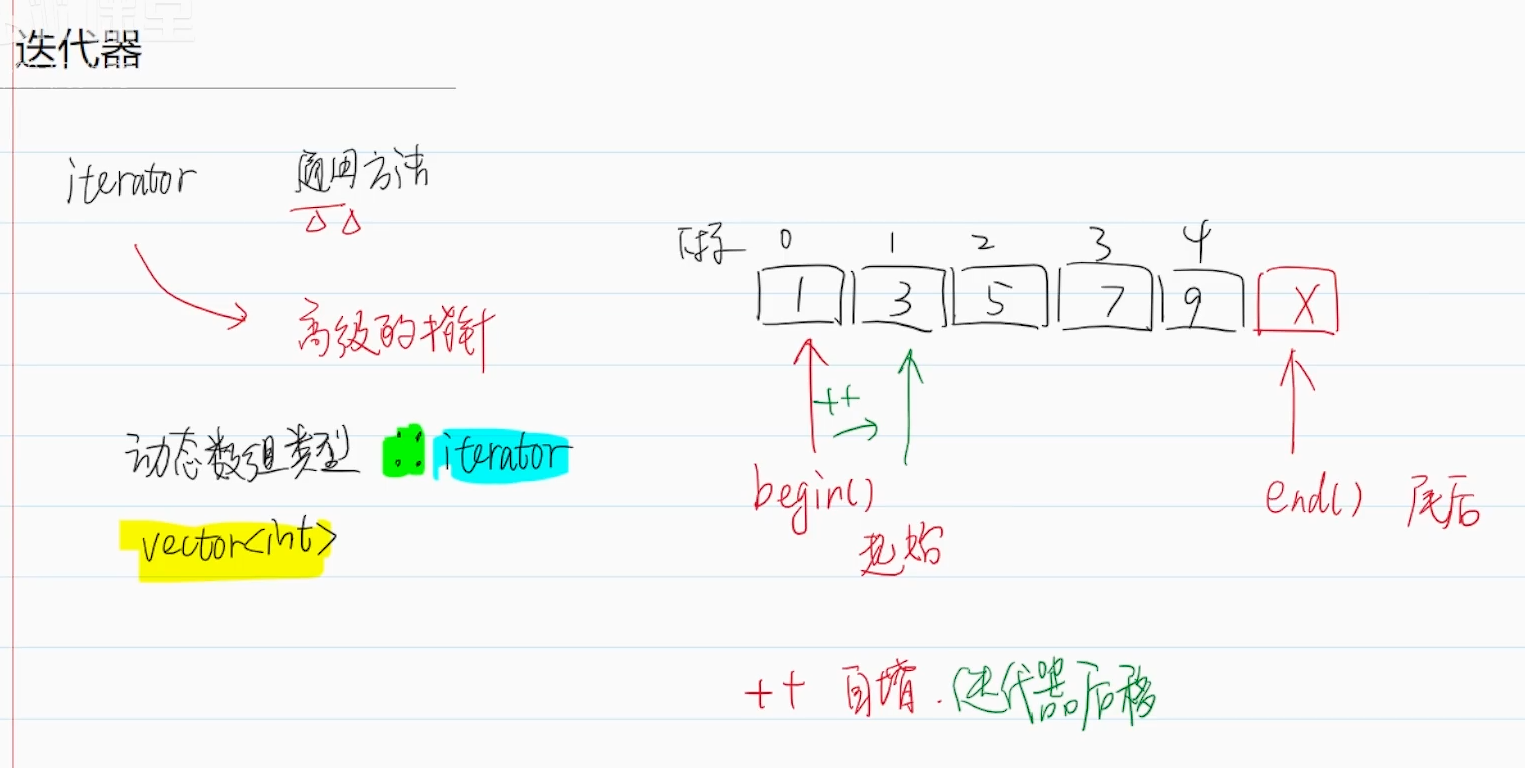 迭代器
iterator 通用方法
高级的指针
动态数组类型 :: iterator
vector<int>
下标 0 1 2 3 4
1 3 5 7 9 X
++
begin()
起始
end() 尾后
++ 自增. 迭代器后移